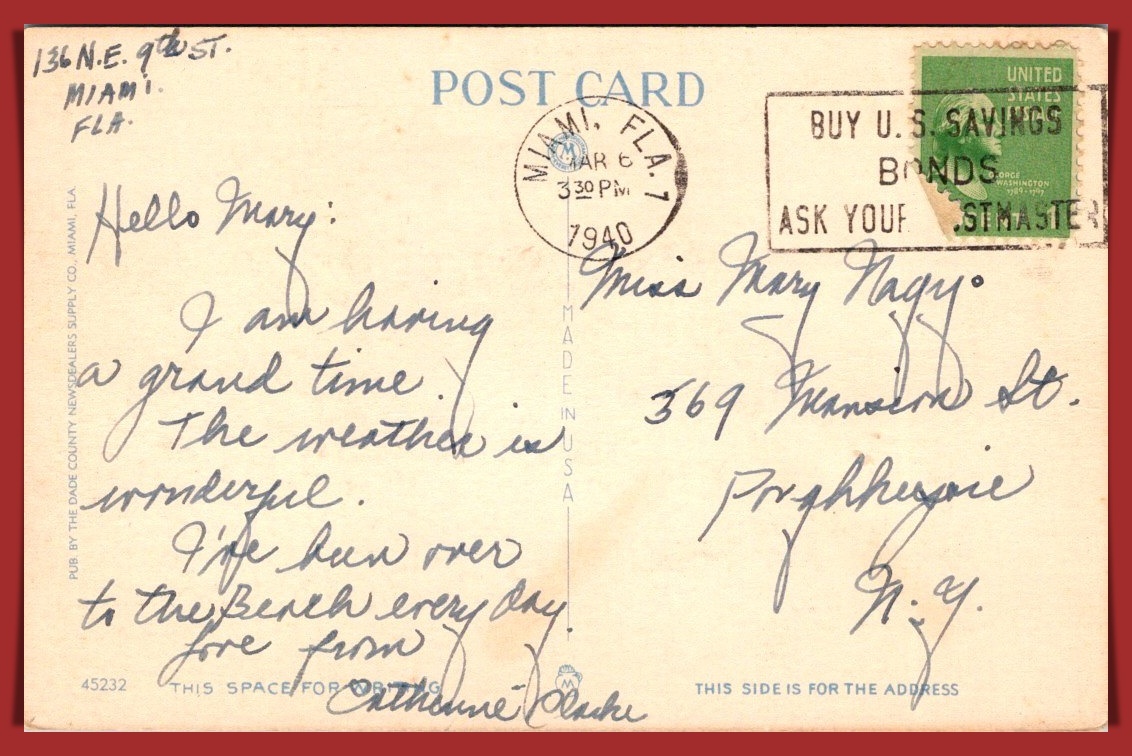 136 N.E. 9th ST.
MIAMI.
FLA.
POST CARD
MIAMI, FLA. 1
MAR 6
3 30 PM
1940
BUY U.S. SAVINGS
BONDS
ASK YOUR POSTMASTER
UNITED
STATES
GEORGE
WASHINGTON
1789-1797
Hello Mary:
I am having
a grand time.
The weather is
wonderful.
I've been over
to the Beach every day.
Love from
Catherine Clarke
Miss Mary Nagy.
369 Mansion St.
Poughkeepsie
N.Y.
PUB. BY THE DADE COUNTY NEWSDEALERS SUPPLY CO., MIAMI, FLA.
MADE IN USA
45232
THIS SPACE FOR WRITING
M
THIS SIDE IS FOR THE ADDRESS